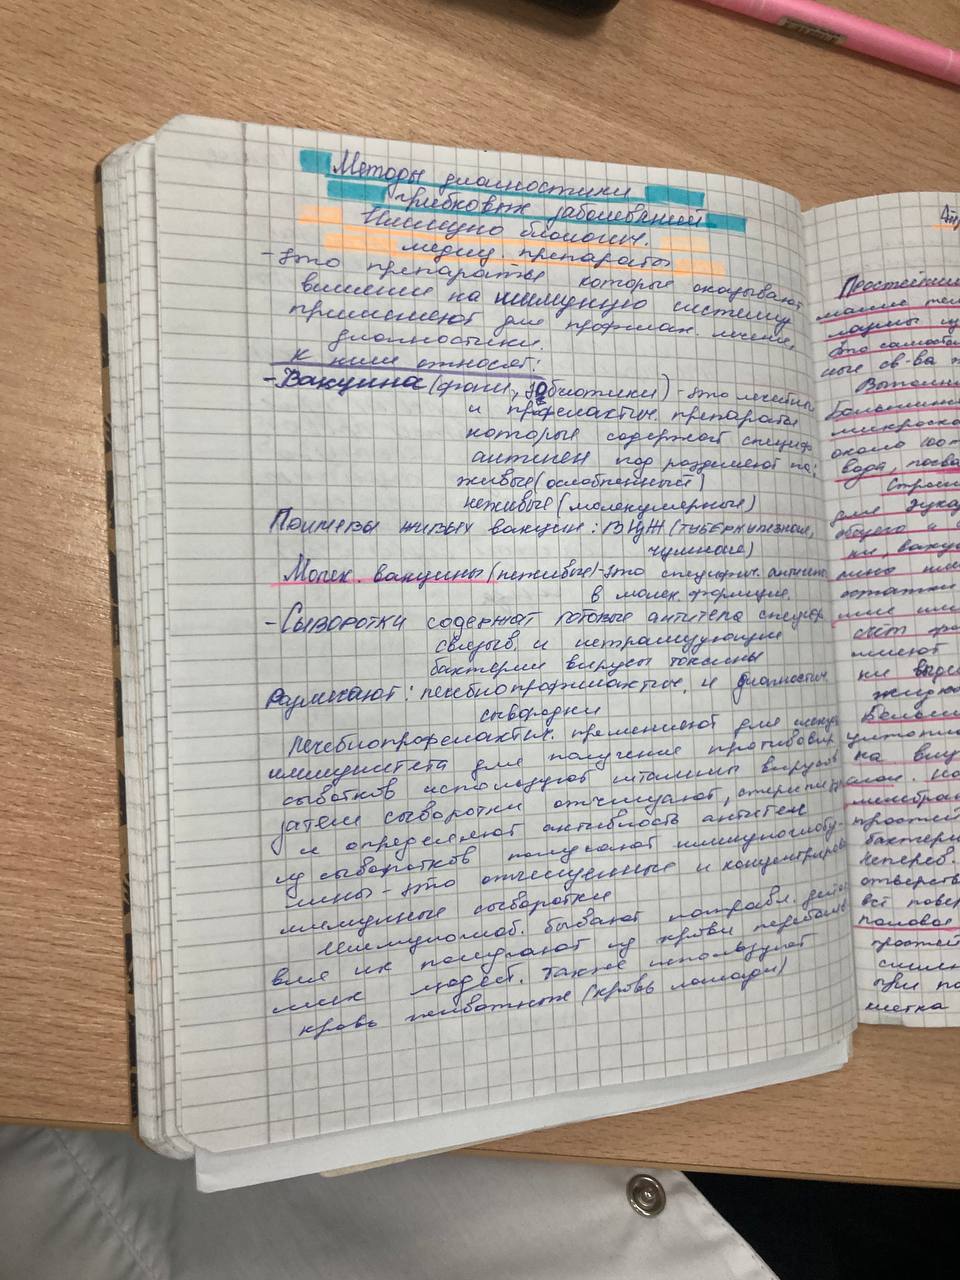 Методы диагностики
грибковых заболеваний
Иммунобиологич.
медиц. препараты
- это препараты которые оказывают
влияние на иммунную систему
применяют для профилак. лечения,
диагностики.
к ним относят:
- Вакцина (фаги, эубиотики) - это лечебные
и профелактич. препараты
которые содержат специф.
антиген подразделяют на:
живые (ослобленный)
неживые (молекулярные)
Примеры живых вакцин: БЦЖ (туберкулезная,
чумная)
Молек. вакцины (неживые) - это специфич. антиген
в молек. формуле.
- Сыворотки содержат готовые антитела специф.
связыв. и нетрализующие
бактерии вирусы токсины
Различают: лечебнопрофилактич. и диагностич.
сыворотки
Лечебнопрофелактич. применяют для
иммунитета для получение противовир.
сывотков используют штаммы вирусов
затем сыворотки отчищают, стерилизуют
и определяют активность антител
из сыворотков получают иммуноглобу-
лины - это отчищенные и концентриров
иммунные сыворотки
Иммуноглоб. бывают направл. дейст
вия их получают из крови переболев
ших людей. Также используют
кровь животных (кровь лошади)
Простейшие
Выполни
микроско
около 100
вода, почва
Строен
для эука
общего и
ни, ваку
остатки
имеют
ни выре
жидко
на вну
мембран
простей
бактери
Неперев.
отверст
всё пове
половое
простей
при по
клетка